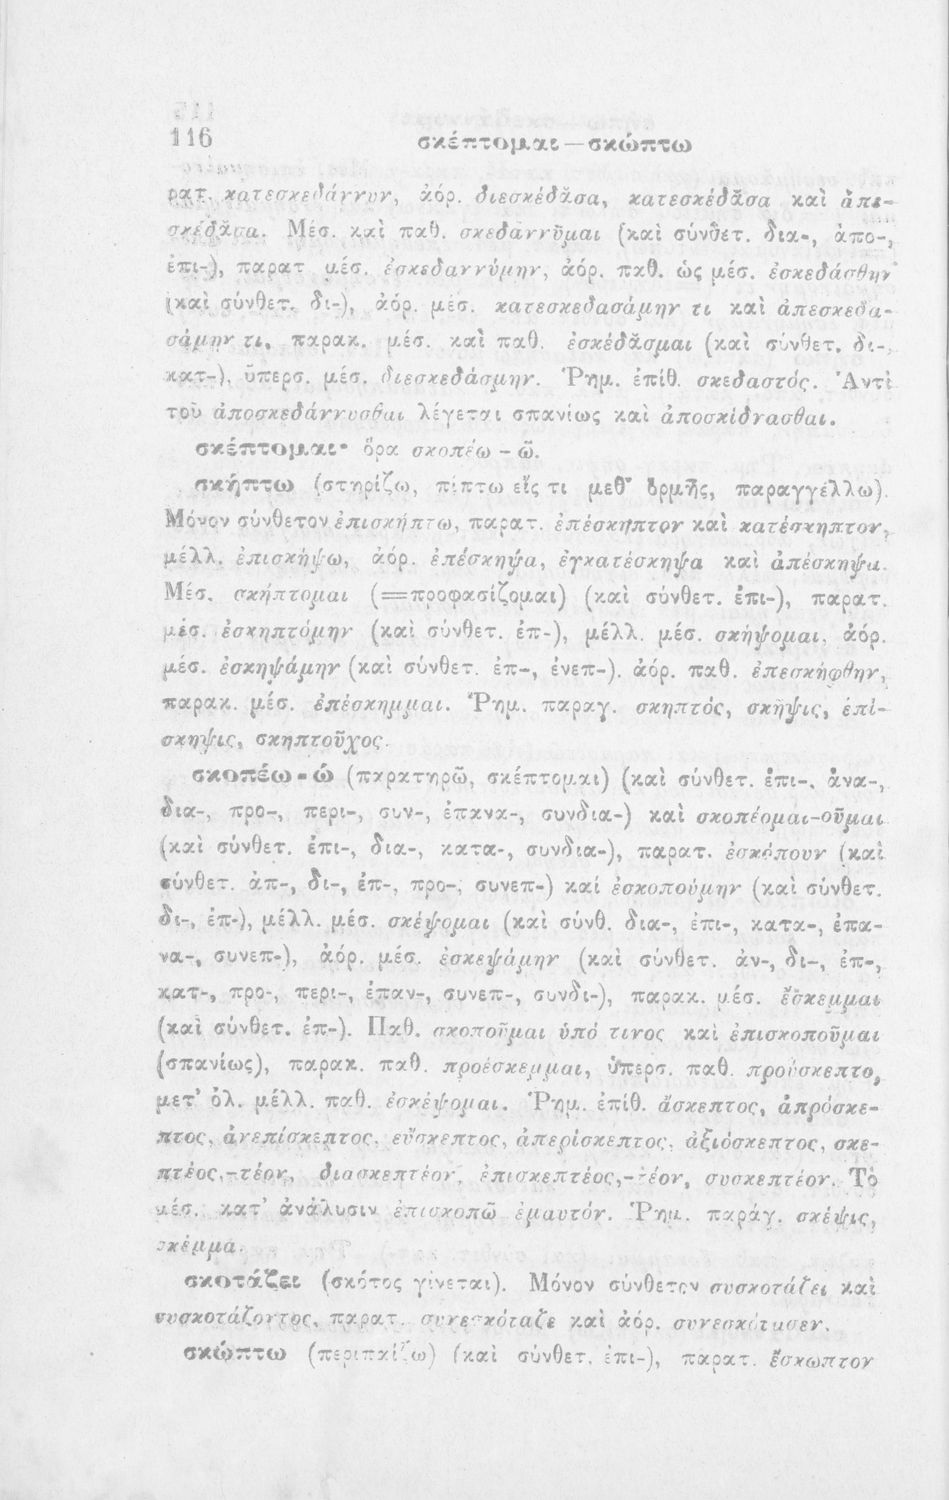 116
σκέπτομαι — σκώπτω
ρατ. κατεσκεδάννυν, ἀόρ. διεσκέδᾰσα, κατεσκέδᾰσα καὶ ἀπε-
σκέδᾰσα. Μέσ. καὶ παθ. σκεδάννῡμαι (καὶ σύνθετ. δια-, ἀπο-,
ἐπι-), παρατ μέσ. ἐσκεδαννύμην, ἀόρ. παθ. ὡς μέσ. ἐσκεδάσθην
(καὶ σύνθετ. δι-), ἀόρ. μέσ. κατεσκεδασάμην τι καὶ ἀπεσκεδα-
σάμην τι, παρακ. μέσ. καὶ παθ. ἐσκέδᾰσμαι (καὶ σύνθετ. δι-,
κατ-), ὑπερσ. μέσ. διεσκεδάσμην. Ῥημ. ἐπίθ. σκεδαστός. Ἀντὶ
τοῦ ἀποσκεδάννυσθαι λέγεται σπανίως καὶ ἀποσκίδνασθαι.
σκέπτομαι· ὅρα σκοπέω - ῶ.
σκήπτω (στηρίζω, πίπτω εἴς τι μεθ' ὁρμῆς, παραγγέλλω).
Μόνον σύνθετον ἐπισκήπτω, παρατ. ἐπέσκηπτον καὶ κατέσκηπτον,
μέλλ. ἐπισκήψω, ἀόρ. ἐπέσκηψα, ἐγκατέσκηψα καὶ ἀπέσκηψα.
Μέσ. σκήπτομαι (=προφασίζομαι) (καὶ σύνθετ. ἐπι-), παρατ.
μέσ. ἐσκηπτόμην (καὶ σύνθετ. ἐπ-), μέλλ. μέσ. σκήψομαι, ἀόρ.
μέσ. ἐσκηψάμην (καὶ σύνθετ. ἐπ-, ἐνεπ-). ἀόρ. παθ. ἐπεσκήφθην,
παρακ. μέσ. ἐπέσκημμαι. Ῥημ. παραγ. σκηπτός, σκῆψις, ἐπί-
σκηψις, σκηπτοῦχος.
σκοπέω - ῶ (παρατηρῶ, σκέπτομαι) (καὶ σύνθετ. ἐπι-, ἀνα-,
δια-, προ-, περι-, συν-, ἐπανα-, συνδια-) καὶ σκοπέομαι-οῦμαι
(καὶ σύνθετ. ἐπι-, δια-, κατα-, συνδια-), παρατ. ἐσκόπουν (καὶ
σύνθετ. ἀπ-, δι-, ἐπ-, προ-, συνεπ-) καί ἐσκοπούμην (καὶ σύνθετ.
δι-, ἐπ-), μέλλ. μέσ. σκέψομαι (καὶ σύνθ. δια-, ἐπι-, κατα-, ἐπα-
να-, συνεπ-), ἀόρ. μέσ. ἐσκεψάμην (καὶ σύνθετ. ἀν-, δι-, ἐπ-,
κατ-, προ-, περι-, ἐπαν-, συνεπ-, συνδι-), παρακ. μέσ. ἔσκεμμαι
(καὶ σύνθετ. ἐπ-). Παθ. σκοποῦμαι ὑπό τινος καὶ ἐπισκοποῦμαι
(σπανίως), παρακ. παθ. προέσκεμμαι, ὑπερσ. παθ. προὔσκεπτο,
μετ' ὀλ. μέλλ. παθ. ἐσκέψομαι. Ῥημ. ἐπίθ. ἄσκεπτος, ἀπρόσκε-
πτος, ἀνεπίσκεπτος, εὔσκεπτος, ἀπερίσκεπτος, ἀξιόσκεπτος, σκε-
πτέος,-τέον, διασκεπτέον, ἐπισκεπτέος,-τέον, συσκεπτέον. Τὸ
μέσ. κατ' ἀνάλυσιν ἐπισκοπῶ ἐμαυτόν. Ῥημ. παράγ. σκέψις,
σκέμμα.
σκοτάζει (σκότος γίνεται). Μόνον σύνθετον συσκοτάζει καὶ
συσκοτάζοντος, παρατ. συνεσκόταζε καὶ ἀόρ. συνεσκότασεν.
σκώπτω (περιπαίζω) (καὶ σύνθετ. ἐπι-), παρατ. ἔσκωπτον